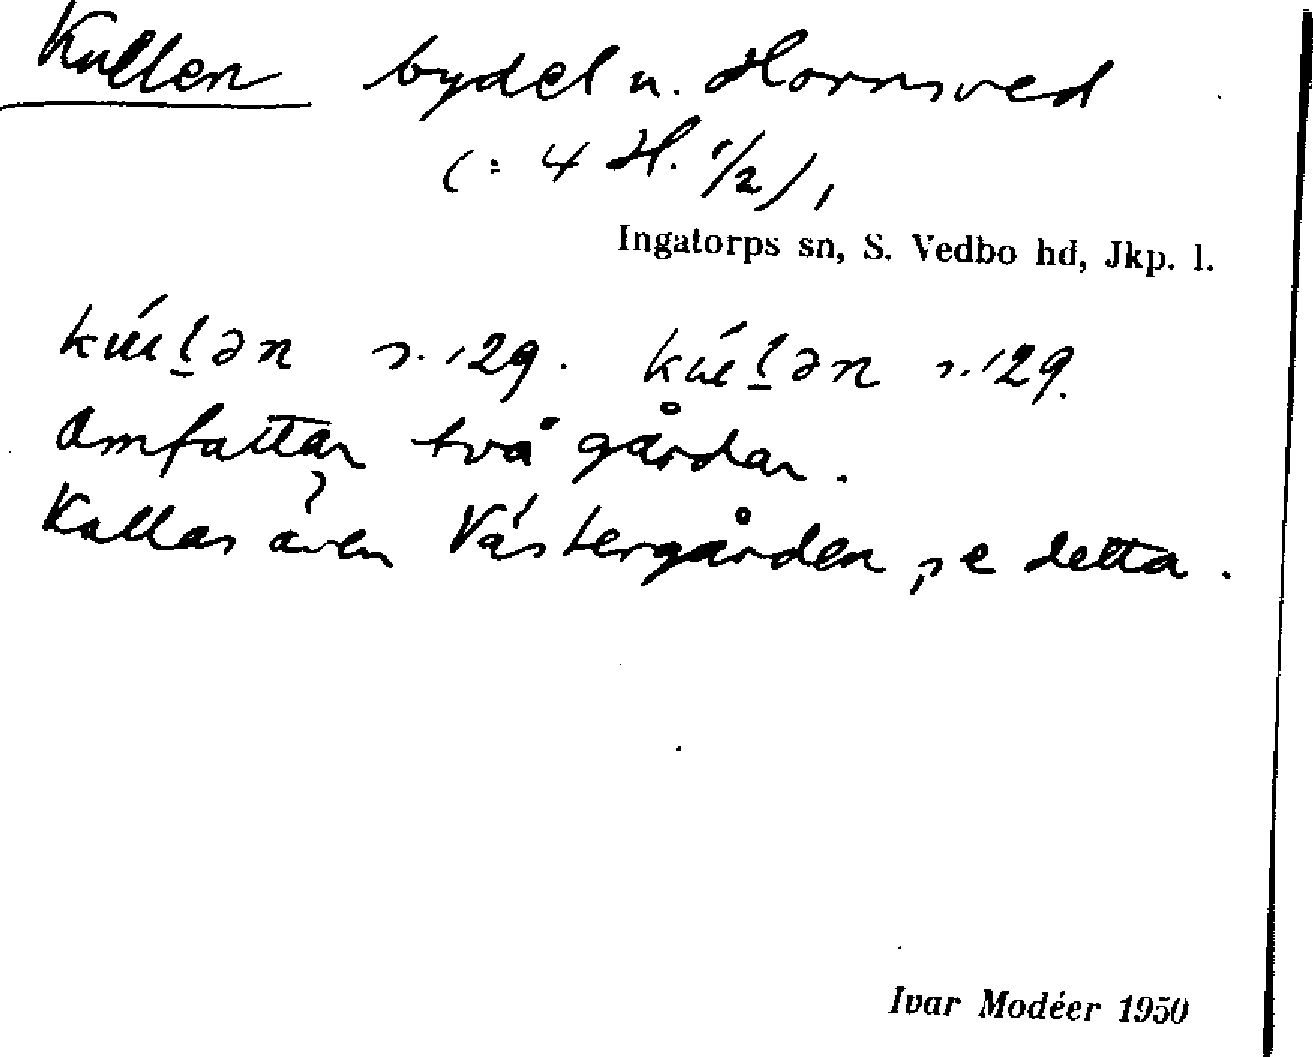 Kullen bydel u. Hornsved
(= 4 H. 1/2),
Ingatorps sn, S. Vedbo hd, Jkp. l.
s. 129. s. 129.
Omfattar två gårdar.
Kallas även Västergården, se detta.
Ivar Modéer 1950